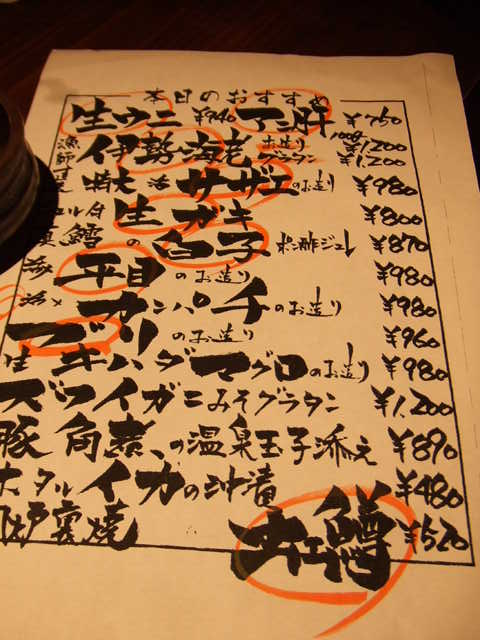 本日のおすすめ
生ウニ ¥940 アン肝 ¥750
伊勢海老 お造り 100g ¥1,200 グラタン ¥1,200
特大 活 サザエのお造り ¥980
生ガキ ¥800
真鱈の白子 ポン酢ジュレ ¥870
平目のお造り ¥980
カンパチのお造り ¥980
ブリのお造り ¥960
生 キハダマグロのお造り ¥980
ズワイガニみそグラタン ¥1,200
豚角煮、の温泉玉子添え ¥890
ホタルイカの沖漬 ¥480
¥520